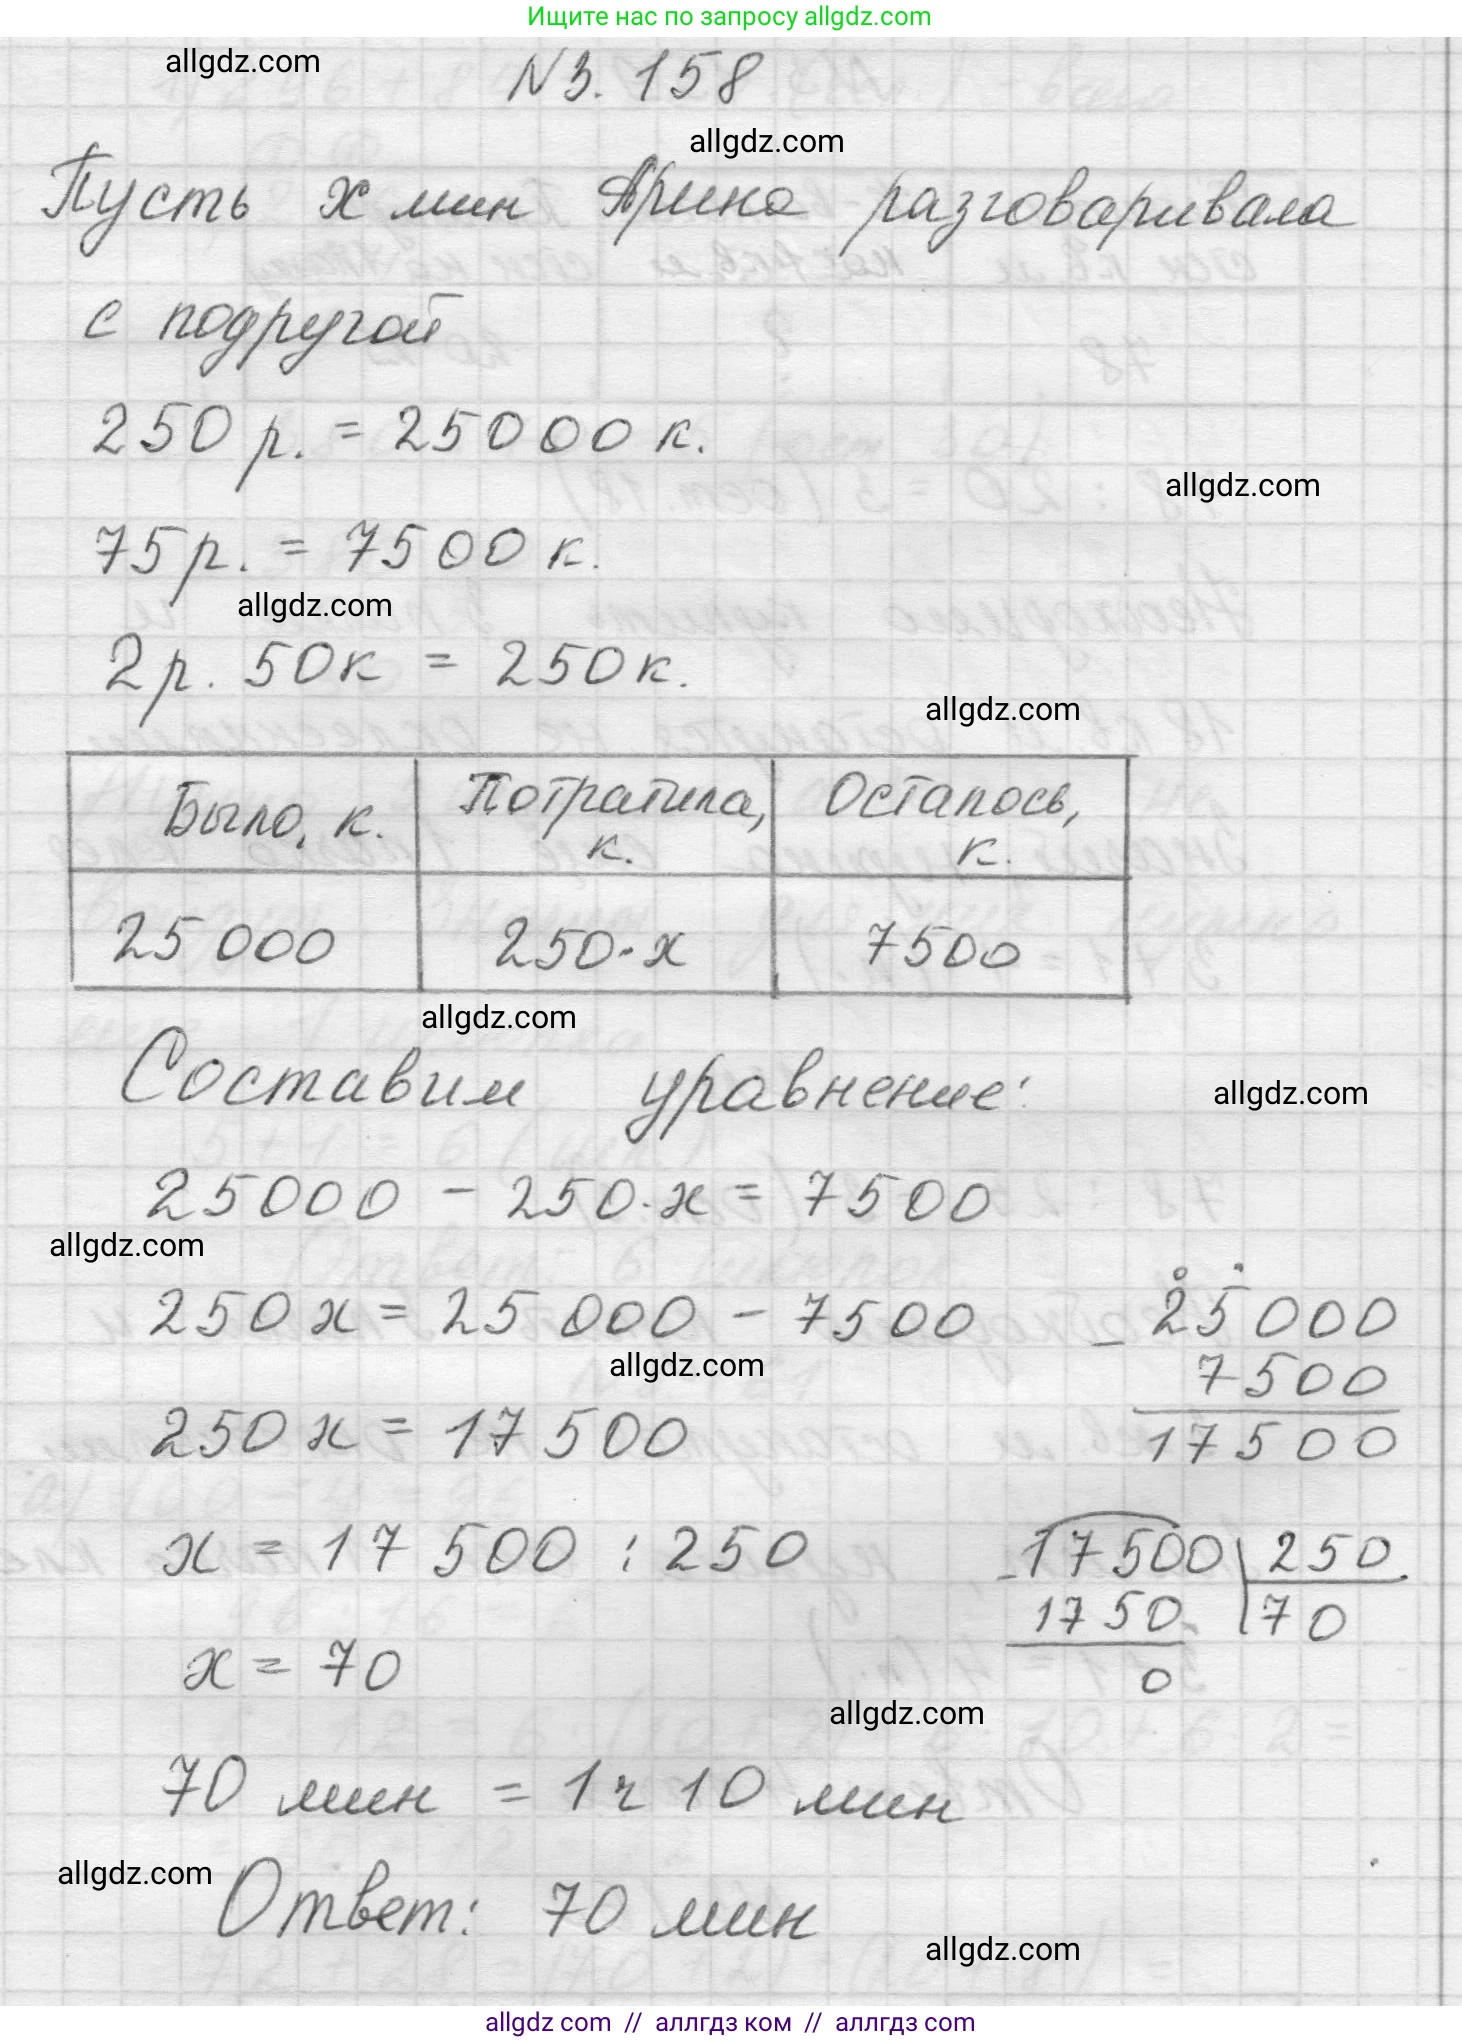 Ищите нас по запросу allgdz.com
allgdz.com
N3.158
allgdz.com
Пусть x мин Арина разговаривала
с подругой
250 р. = 25000 к.
allgdz.com
75 р. = 7500 к.
allgdz.com
2 р. 50 к = 250 к.
allgdz.com
Было, к. Потратила, к. Осталось, к.
25 000 250·x 7500
allgdz.com
Составим уравнение:
allgdz.com
25000 - 250·x = 7500
allgdz.com
250 x = 25 000 - 7500
- 25000
7500
17500
allgdz.com
250 x = 17 500
x = 17 500 : 250
- 17500 250
1750 70
0
x = 70
allgdz.com
70 мин = 1 ч 10 мин
allgdz.com
Ответ: 70 мин
allgdz.com
allgdz com // аллгдз ком // аллгдз com